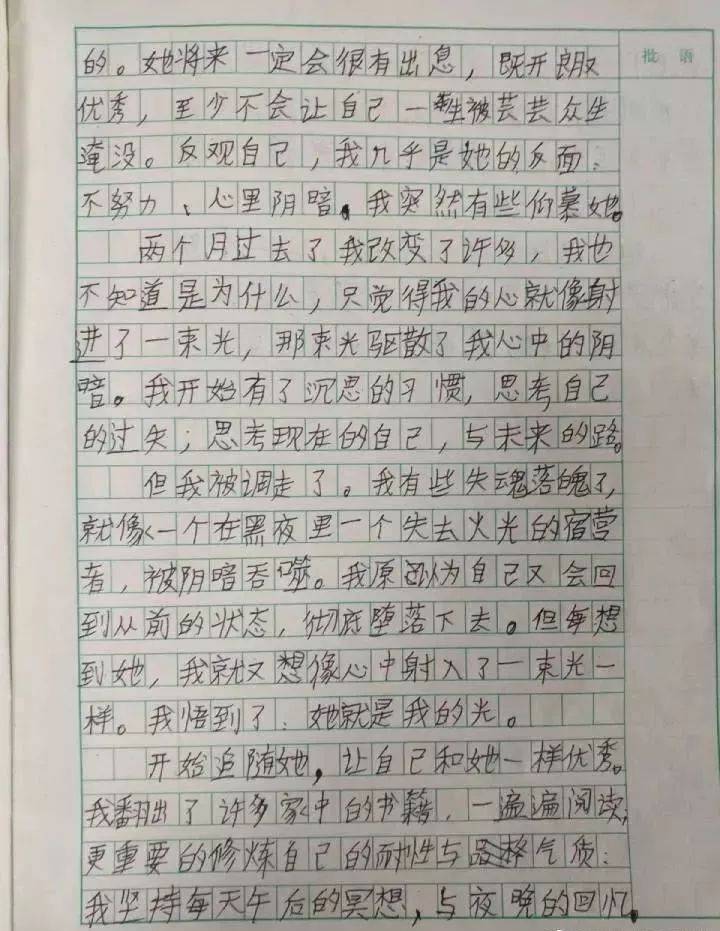 批 语
的。她将来一定会很有出息，既开朗又
优秀，至少不会让自己一生被芸芸众生
淹没。反观自己，我几乎是她的反面：
不努力、心里阴暗。我突然有些仰慕她。
两个月过去了我改变了许多，我也
不知道是为什么，只觉得我的心就像射
进了一束光，那束光驱散了我心中的阴
暗。我开始有了沉思的习惯，思考自己
的过失；思考现在的自己，与未来的路。
但我被调走了。我有些失魂落魄了，
就像一个在黑夜里一个失去火光的宿营
者，被阴暗吞噬。我原以为自己又会回
到从前的状态，彻底堕落下去。但每想
到她，我就又想像心中射入了一束光一
样。我悟到了：她就是我的光。
开始追随她，让自己和她一样优秀。
我翻出了许多家中的书籍，一遍遍阅读，
更重要的修炼自己的耐性与品格气质：
我坚持每天午后的冥想，与夜晚的回忆。